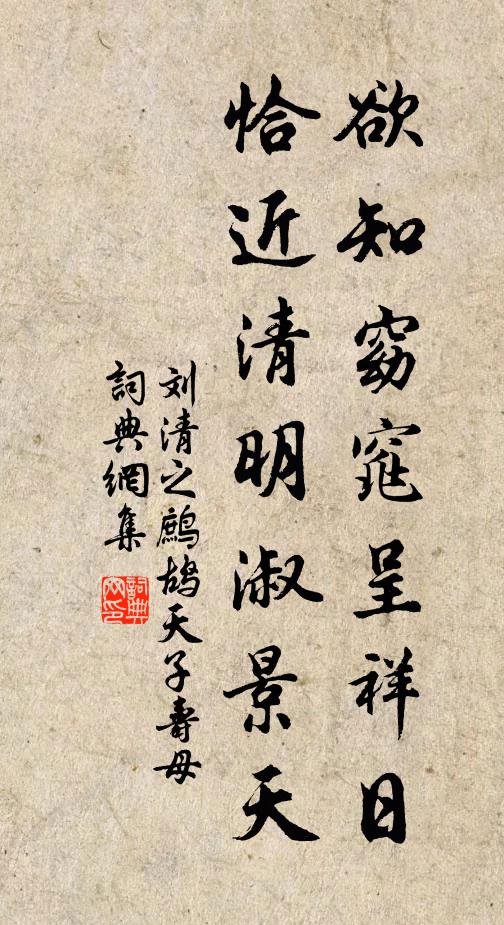 欲知窈窕呈祥日
恰近清明淑景天
刘清之鹧鸪天子壽母
詞典網集
詞典網印